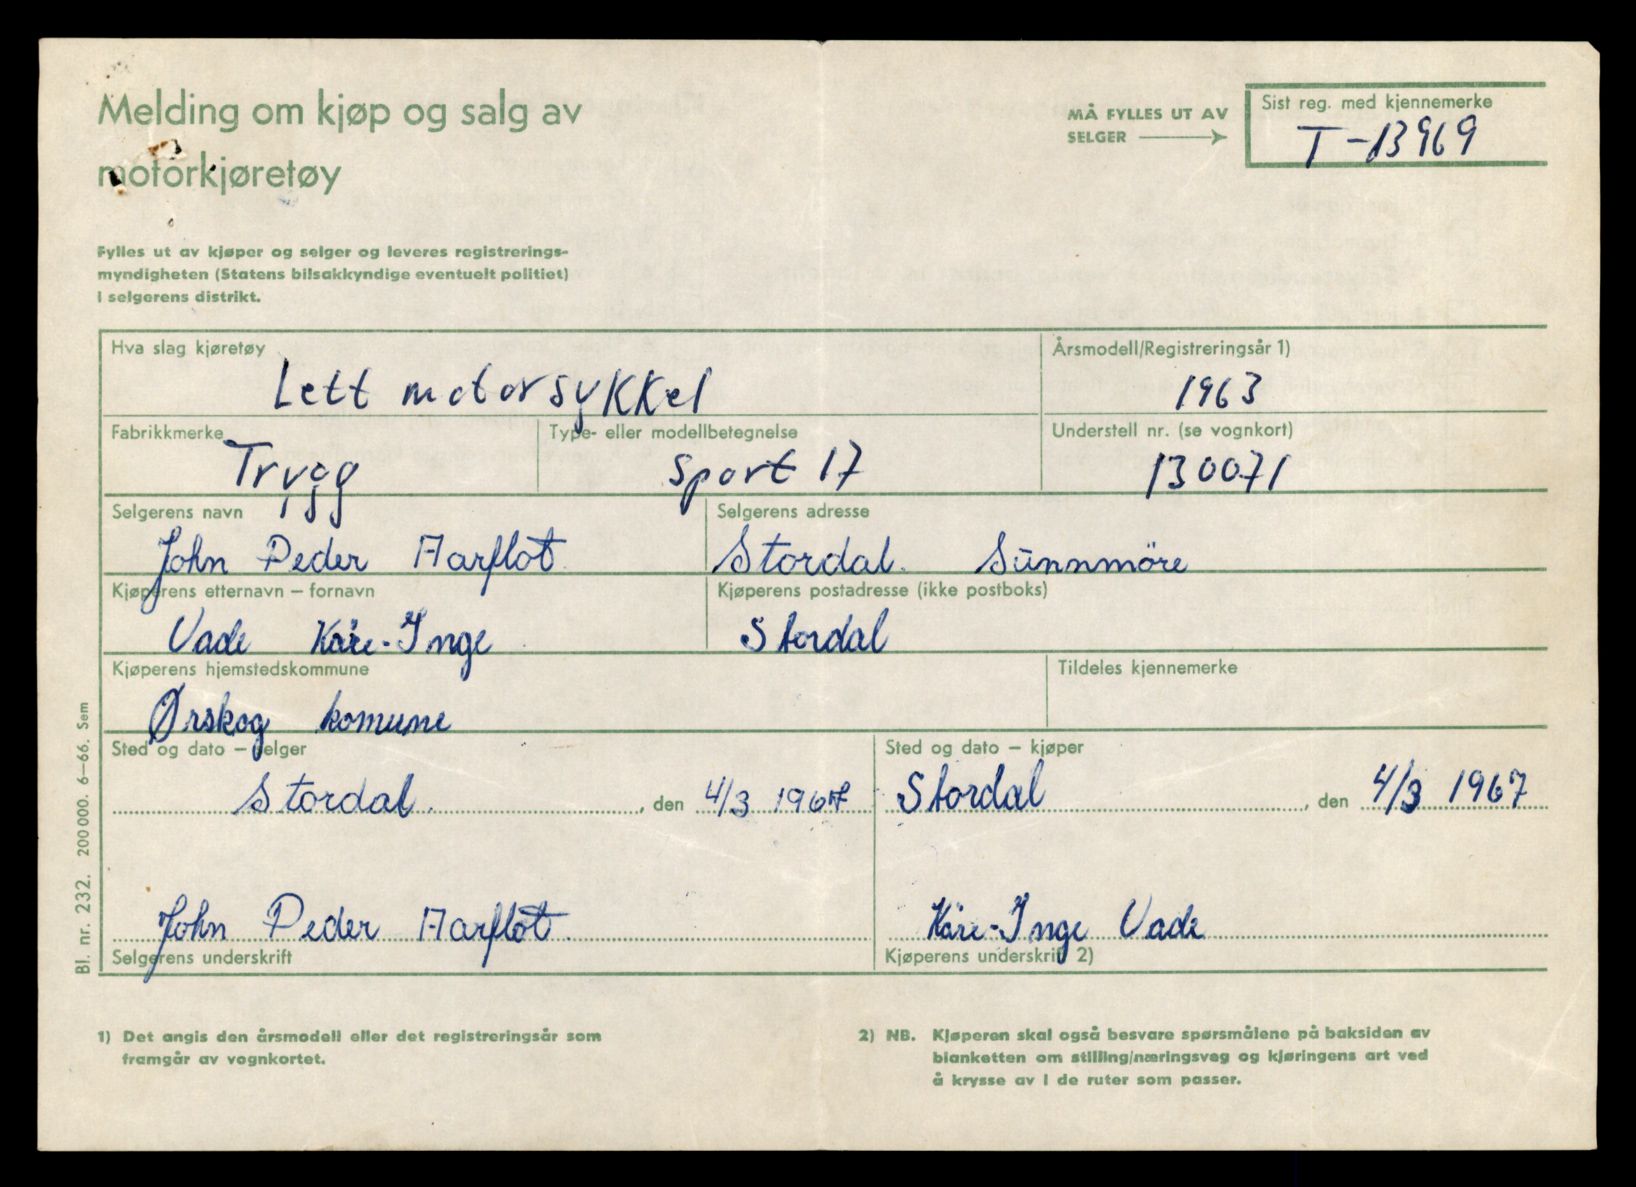 Melding om kjøp og salg av
motorkjøretøy
MÅ FYLLES UT AV
SELGER
Sist reg. med kjennemerke
T-13969
Fylles ut av kjøper og selger og leveres registrerings-
myndigheten (Statens bilsakkyndige eventuelt politiet)
i selgerens distrikt.
Hva slag kjøretøy
Årsmodell/Registreringsår 1)
Lett motorsykkel
1963
Fabrikkmerke
Type- eller modellbetegnelse
Understell nr. (se vognkort)
Trygg
Sport 17
130071
Selgerens navn
Selgerens adresse
John Peder Aarflot
Stordal. Sunnmöre
Kjøperens etternavn – fornavn
Kjøperens postadresse (ikke postboks)
Vade Kåre-Inge
Stordal
Kjøperens hjemstedskommune
Tildeles kjennemerke
Ørskog komune
Sted og dato – selger
Sted og dato – kjøper
Stordal. , den 4/3 1967
Stordal , den 4/3 1967
John Peder Aarflot
Kåre-Inge Vade
Selgerens underskrift
Kjøperens underskrift 2)
1) Det angis den årsmodell eller det registreringsår som
framgår av vognkortet.
2) NB. Kjøperen skal også besvare spørsmålene på baksiden av
blanketten om stilling/næringsveg og kjøringens art ved
å krysse av i de ruter som passer.
Bl. nr. 232. 200000. 6–66. Sem